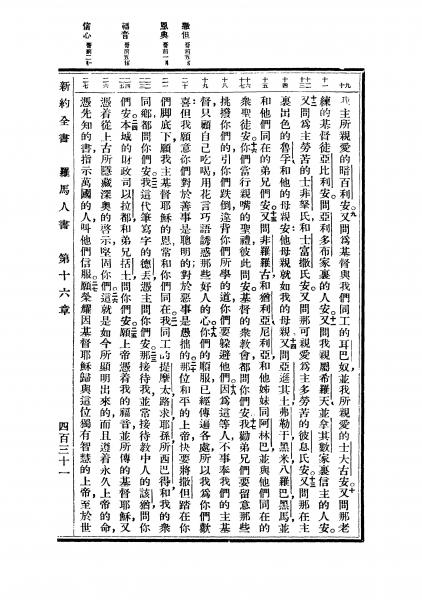 撒但
恩典
福音
信心
主所親愛的暗百利安又問爲基督與我們同工的耳巴奴並我所親愛的士大古安又問那老
練的基督徒亞比利安問亞利多布家裏的人安又問我親屬希羅天並拿其數家裏信主的人安
又問爲主勞苦的士非拏氏和士富撒氏安又問那可親愛爲主多勞苦的彼息氏安又問那在主
裏出色的魯孚和他的母親安他母親就如我的母親又問亞遜其土弗勒干黑米八羅巴黑馬並
和他們同在的弟兄們安又問非羅羅古和猶利亞尼利亞和他姊妹同阿林巴並與他們同在的
衆聖徒安你們當行親嘴的聖禮彼此問安基督的衆教會都問你們安我勸弟兄們要留意那些
挑撥你們的引你們跌倒違背你們所學的道你們要躲避他們因爲這等人不事奉我們的主基
督只顧自己吃喝用花言巧語誘惑那些好人的心你們的順服已經傳遍各處所以我爲你們歡
喜但我願意你們對於善事是聰明的對於惡事是愚拙的那位和平的上帝快要將撒但踏在你
們脚底下願我主基督耶穌的恩常和你們同在我同工的提摩太路求耶孫所西巴得和我的衆
同鄉都問你們安我這代筆寫字的德丟憑主問你們安那接待我並常接待教中人的該猶問你
們安本城的財政司以拉都和弟兄括土問你們安願上帝憑着我的福音並所傳的基督耶穌又
憑着從上古所隱藏深奧的啓示堅固你們這就是如今所顯明出來的而且遵着永久上帝的命
憑先知的書指示萬國的人叫他們信服願榮耀因基督耶穌歸與這位獨有智慧的上帝至於世
新約全書 羅馬人書 第十六章 四百三十一